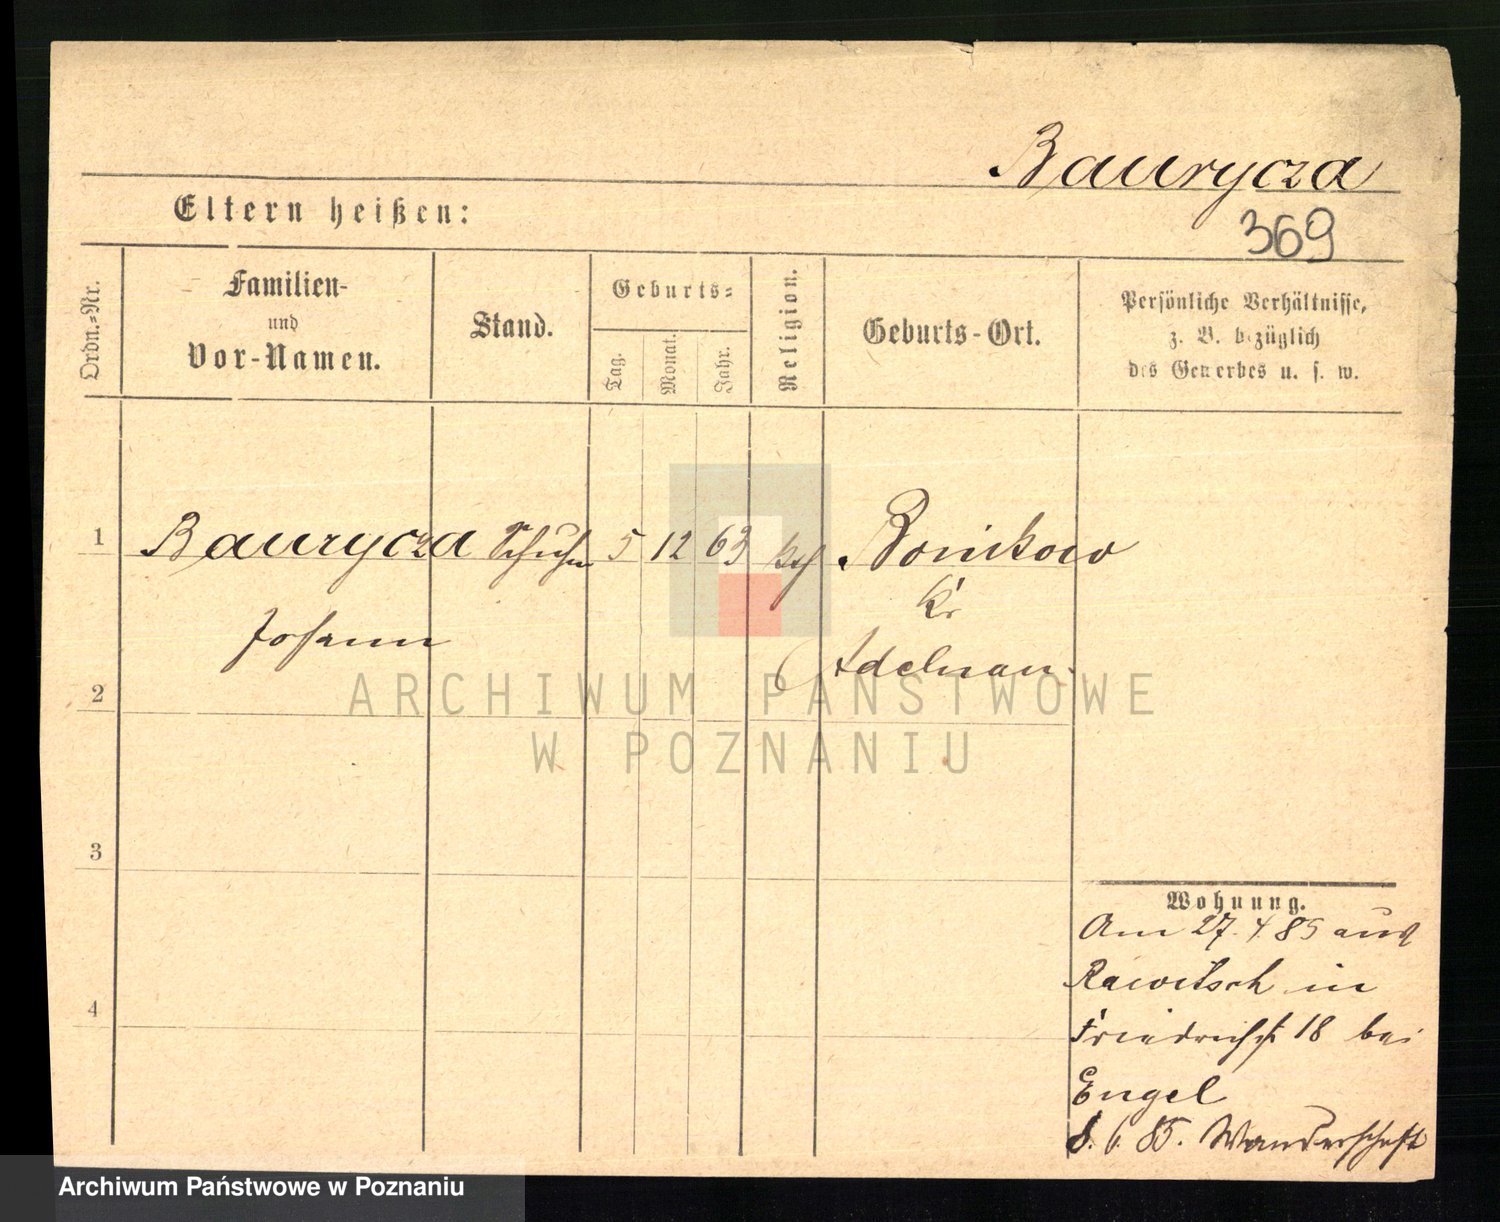 Baurycza
Eltern heißen:
369
Ordn.-Nr.
Familien-
und
Vor-Namen.
Stand.
Geburts-
Tag.
Monat.
Jahr.
Religion.
Geburts-Ort.
Persönliche Verhältnisse,
z. B. bezüglich
des Gewerbes u. s. w.
1 Baurycza 5 12 63 kth Bonikowo
Kr
Johann
Adelnau
2
ARCHIWUM PAŃSTWOWE
W POZNANIU
3
4
Wohnung.
Am 27. 4. 85 aus
Rawitsch in
Friedrichst 18 bei
Engel
8. 6. 85. Wanderschaft
Archiwum Państwowe w Poznaniu